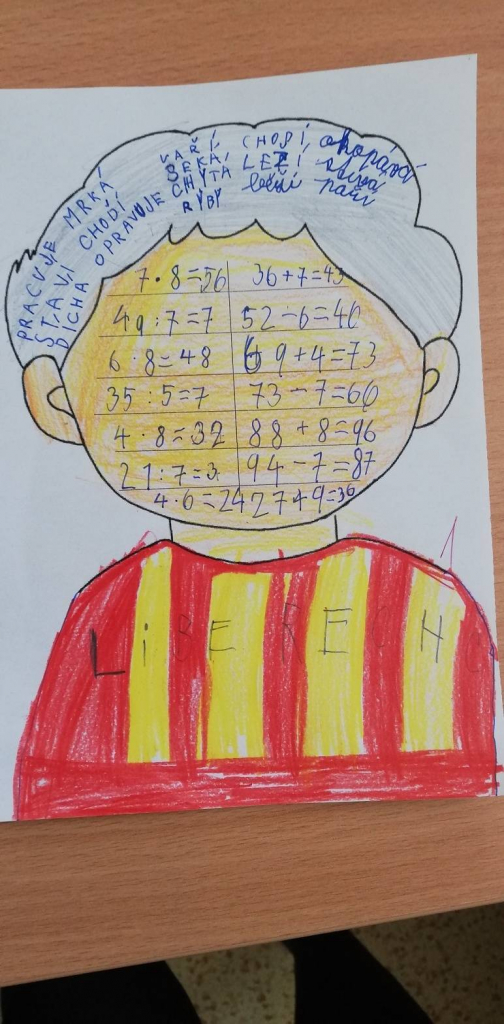 PRACUJE MRKÁ
STAVÍ CHODÍ
DICHA OPRAVUJE
VAŘÍ
SEKÁ
CHYTÁ
RYBY
CHODÍ
LEŽÍ
okopává
7 · 8 = 56 36 + 7 = 43
49 : 7 = 7 52 - 6 = 46
6 · 8 = 48 69 + 4 = 73
35 : 5 = 7 73 - 7 = 66
4 · 8 = 32 88 + 8 = 96
21 : 7 = 3 94 - 7 = 87
4 · 6 = 24 27 + 9 = 36
LiBERECH